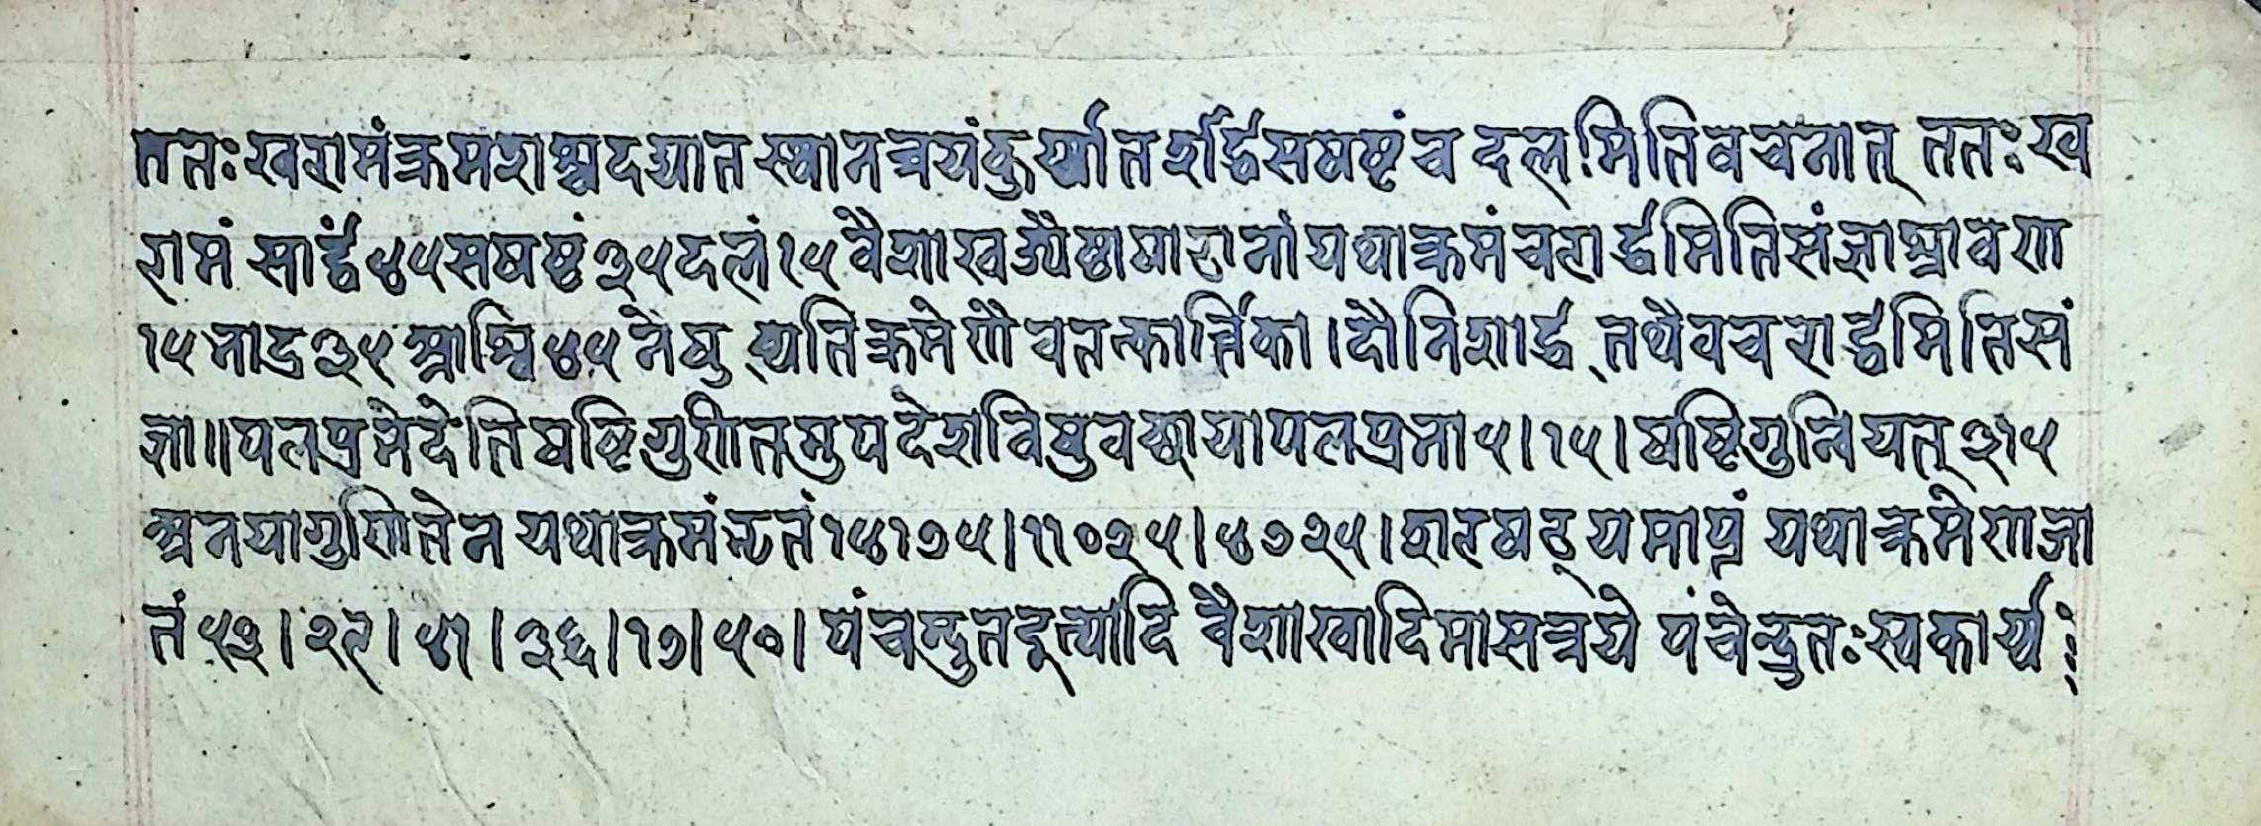 ततः खरामं क्रमशश्च दद्यात स्थानत्रयं कुर्य्यात शर्द्धिसषष्टं च दलमिति वचनात् ततः ख
रामं सार्द्धं ४५ सषष्टं ३५ दलं १५ वैशाख ज्यैष्ठाषाढानां यथाक्रमं चरार्द्धमिति संज्ञा श्रावणा
१५ भाद्र ३५ आश्वि ४५ नेषु व्यतिक्रमेणैव तत्कार्त्तिका । दौ निशार्द्ध् तथैव चरार्द्धमिति सं
ज्ञा ॥ पलप्रभेदेति षष्टिगुणीतमुपदेश विषुवच्छाया पलप्रभा ५ । १५ । षष्टिगुन्वियत् ३१५
अनया गुणितेन यथाक्रमं ४१७५ । ११०२५ । ४७२५ । यमाप्तं यथाक्रमेण जा
तं ५३ । २९ । ४१ । ३६ । १७ । ५० । वैशाखादिमासत्रये पंचेन्दुतः स्वकार्य्यः